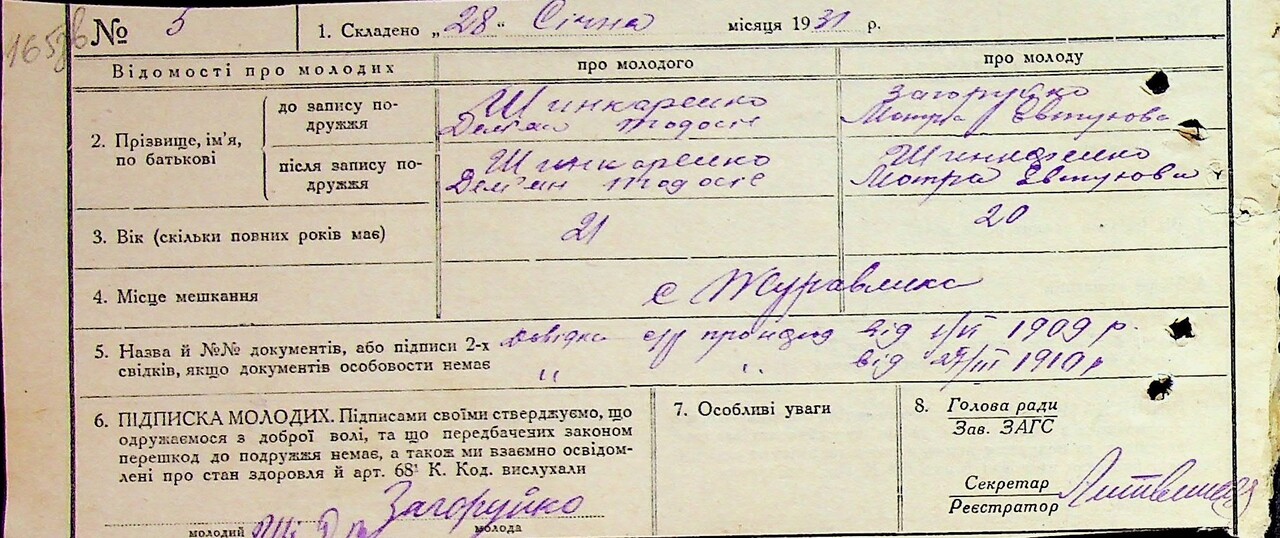 № 5 1. Складено „28" Січня місяця 1931 р.
Відомості про молодих про молодого про молоду
2. Прізвище, ім'я, по батькові
до запису подружжя Шинкаренко Загоруйко
Дем'ян Тодосіє Мотра Євтухова
після запису подружжя Шинкаренко Шинкаренко
Дем'ян Тодосіє Мотра Євтухова
3. Вік (скільки повних років має) 21 20
4. Місце мешкання с Журавлинка
5. Назва й №№ документів, або підписи 2-х довідка с/р про від 1/VI 1909 р.
свідків, якщо документів особовости немає " " від 27/III 1910 р
6. ПІДПИСКА МОЛОДИХ. Підписами своїми стверджуємо, що
одружаємося з доброї волі, та що передбачених законом
перешкод до подружжя немає, а також ми взаємно освідом-
лені про стан здоровля й арт. 68¹ К. Код. вислухали
Загоруйко
молодий молода
7. Особливі уваги
8. Голова ради
Зав. ЗАГС
Секретар
Реєстратор